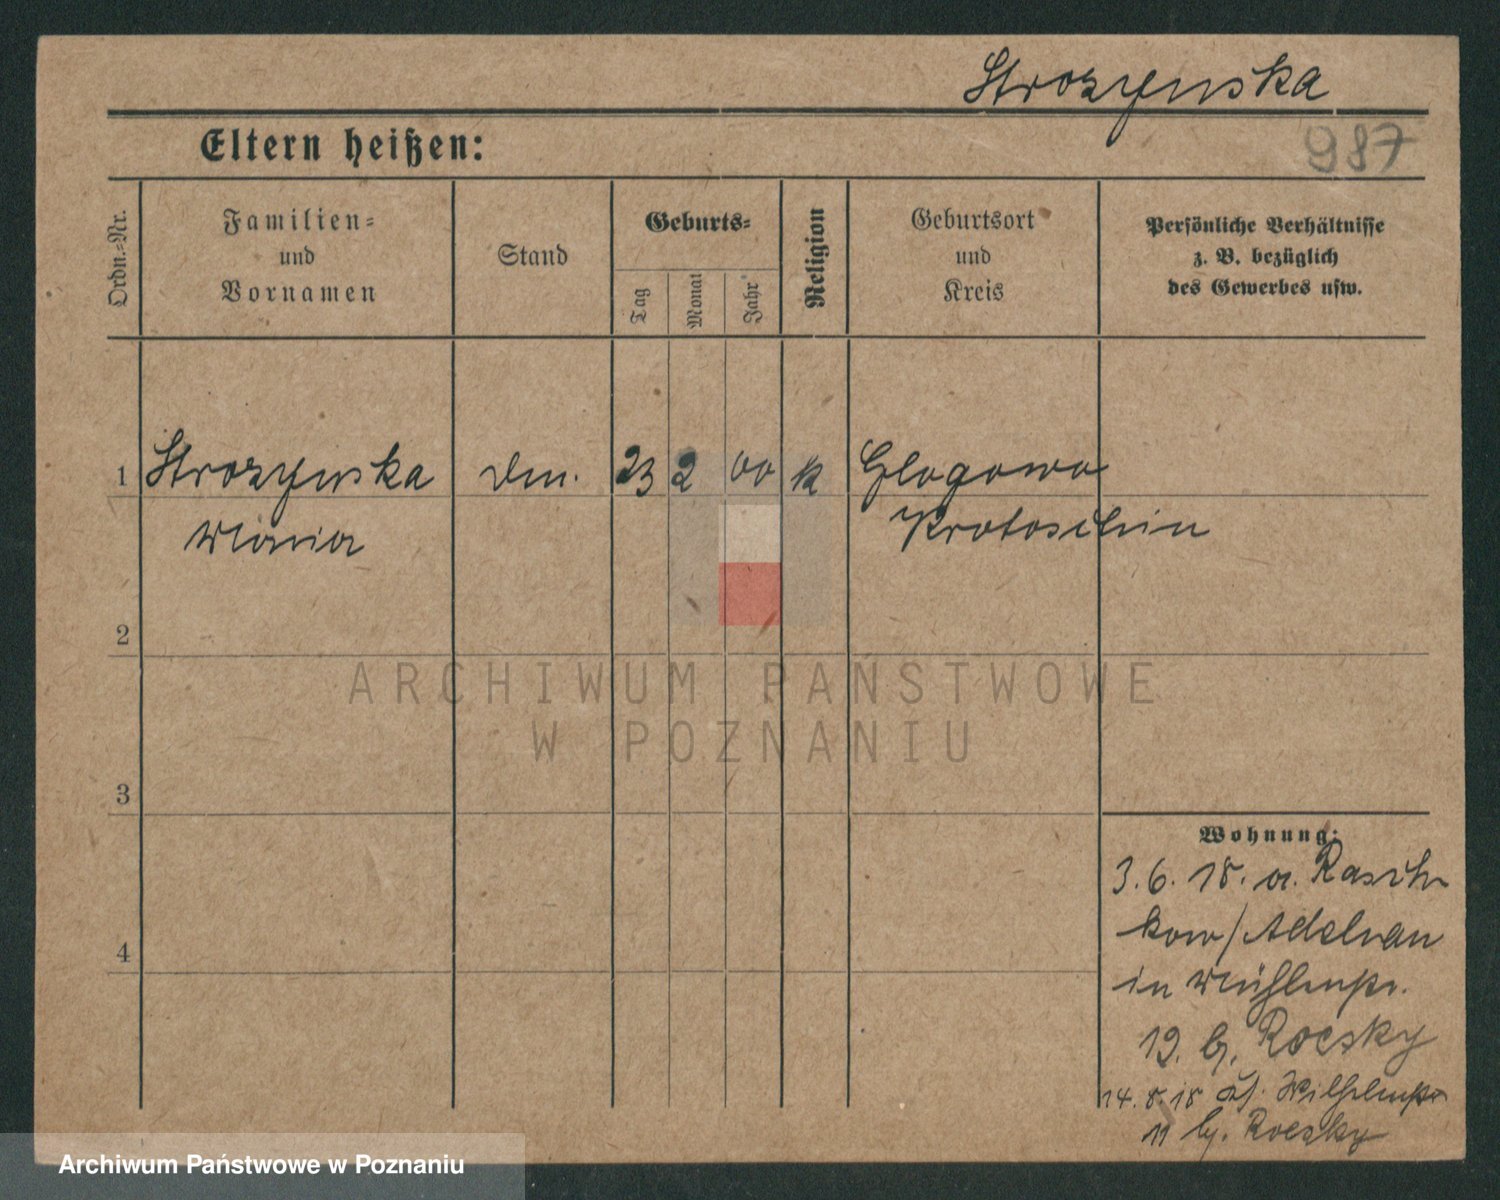 Strozynska
987
Eltern heißen:
Ordn.-Nr.
Familien-
und
Vornamen
Stand
Geburts-
Tag
Monat
Jahr
Religion
Geburtsort
und
Kreis
Persönliche Verhältnisse
z. B. bezüglich
des Gewerbes usw.
1 Strozynska 23 2 00 k Glogowo
Maria Krotoschin
2
ARCHIWUM PAŃSTWOWE
W POZNANIU
3
Wohnung:
3. 6. 18. a. Rasch-
kow / Adelnau
4
in Mühlenstr.
19. b. Roesky
14. 8. 18 Wilhelmstr
11 b. Roesky
Archiwum Państwowe w Poznaniu